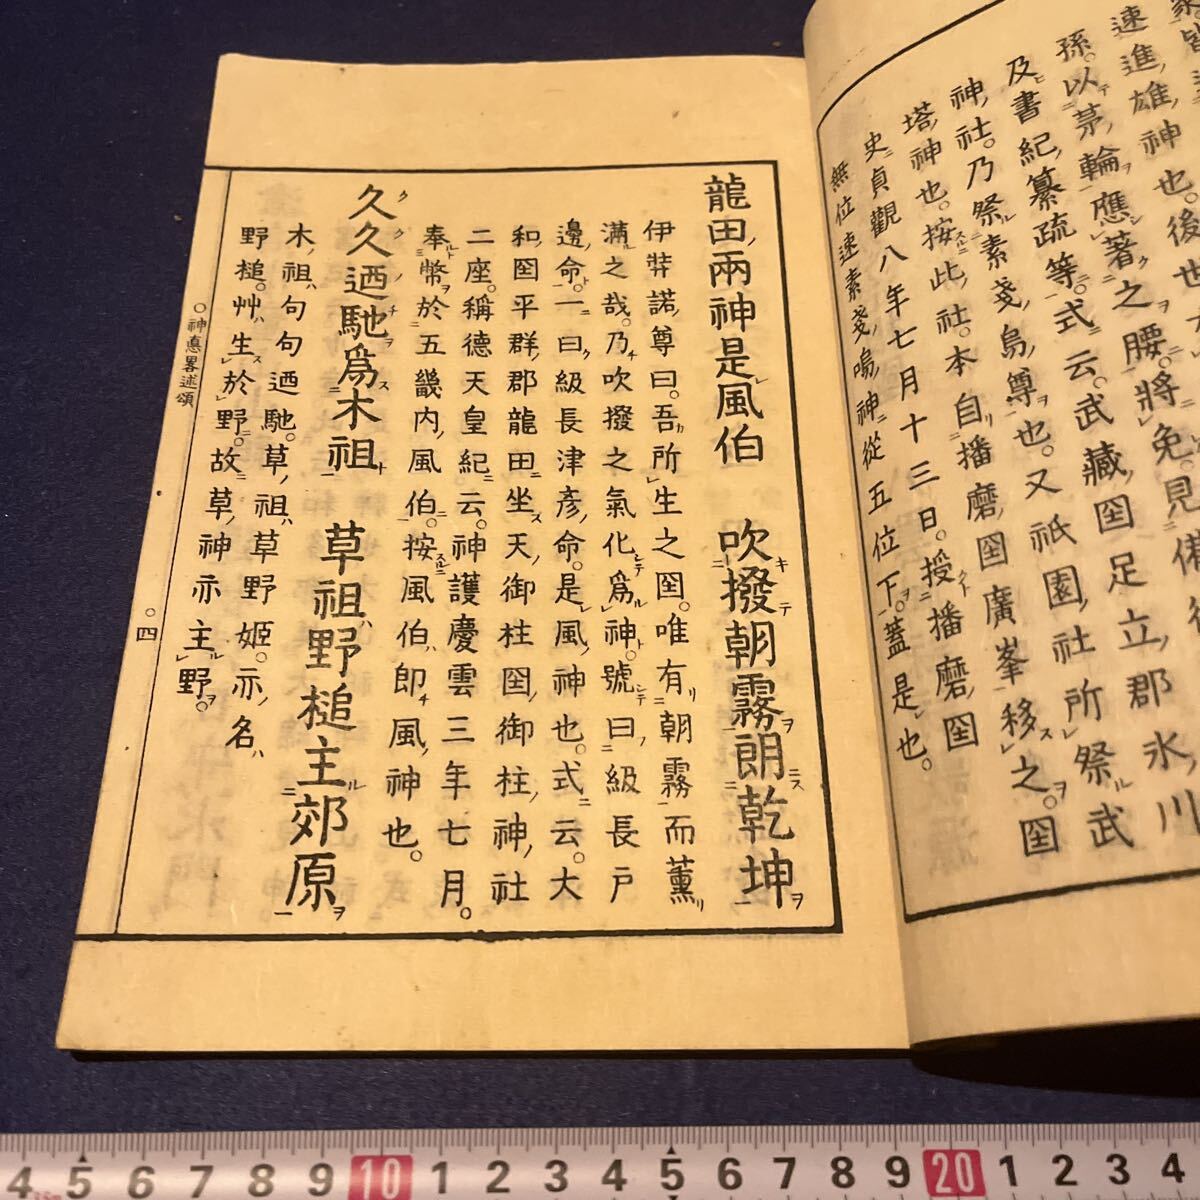 速進雄神也後世
孫以茅輪應著之腰將免見備
及書紀纂疏等式云武藏圀足立郡氷川
神社乃祭素戔烏尊也又祇園社所祭武
塔神也按此社本自播磨圀廣峯移之圀
史貞觀八年七月十三日授播磨圀
無位速素戔嗚神從五位下蓋是也
龍田兩神是風伯 吹撥朝霧朗乾坤
伊弉諾尊曰吾所生之圀唯有朝霧而薰
滿之哉乃吹撥之氣化爲神號曰級長戸
邊命一曰級長津彥命是風神也式云大
和圀平群郡龍田坐天御柱圀御柱神社
二座稱德天皇紀云神護慶雲三年七月
奉幣於五畿内風伯按風伯即風神也
久久迺馳爲木祖 草祖野槌主郊原
木祖句句迺馳草祖草野姬亦名
野槌艸生於野故草神亦主野
○神悳畧述頌
○四
4 5 6 7 8 9 10 1 2 3 4 5 6 7 8 9 20 1 2 3 4